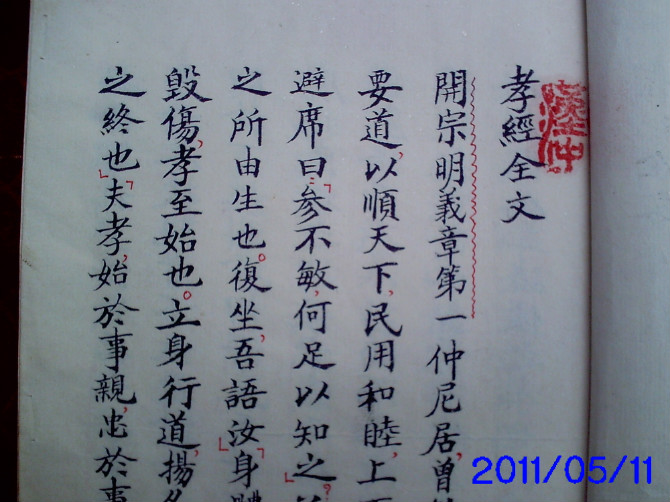 孝經全文
開宗明義章第一仲尼居,曾
要道,以順天下,民用和睦,上
避席曰:「參不敏,何足以知之。」
之所由生也。復坐,吾語汝」「身體
毀傷,孝至始也。立身行道,揚名
之終也」「夫孝,始於事親,忠於事
2011/05/11